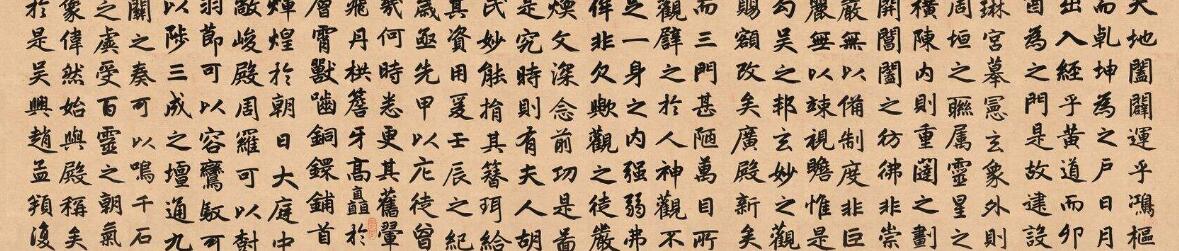 天地闔闢運乎鴻樞
而乹坤為之戶日月
出入經乎黃道而卯
酉為之門是故建設
琳宮摹憲玄象外則
周垣之聮属靈星之
橫陳内則重闥之劃
開閶闔之彷彿非崇
嚴無以備制度非巨
麗無以竦視瞻惟是
勾吴之邦玄妙之觀
賜額改矣廣殿新矣
而三門甚陋萬目所
觀譬之於人神觀不
足一身之内强弱弗
侔非欠歟觀之徒嚴
煥文深念前功是啚
是究時則有夫人胡
氏妙能捐其簪珥給
其資用爰壬辰之紀
歲亟先甲以庀徒曾
幾何時悉更其舊翬
飛丹栱簷牙髙矗於
層霄獸嚙銅鐶鋪首
煇煌於朝日大庭中
敞峻殿周羅可以樹
羽節可以容鸞馭可
以陟三成之壇通九
關之奏可以鳴千石
之虡受百靈之朝氣
象偉然始與殿稱矣
於是吴興趙孟頫復